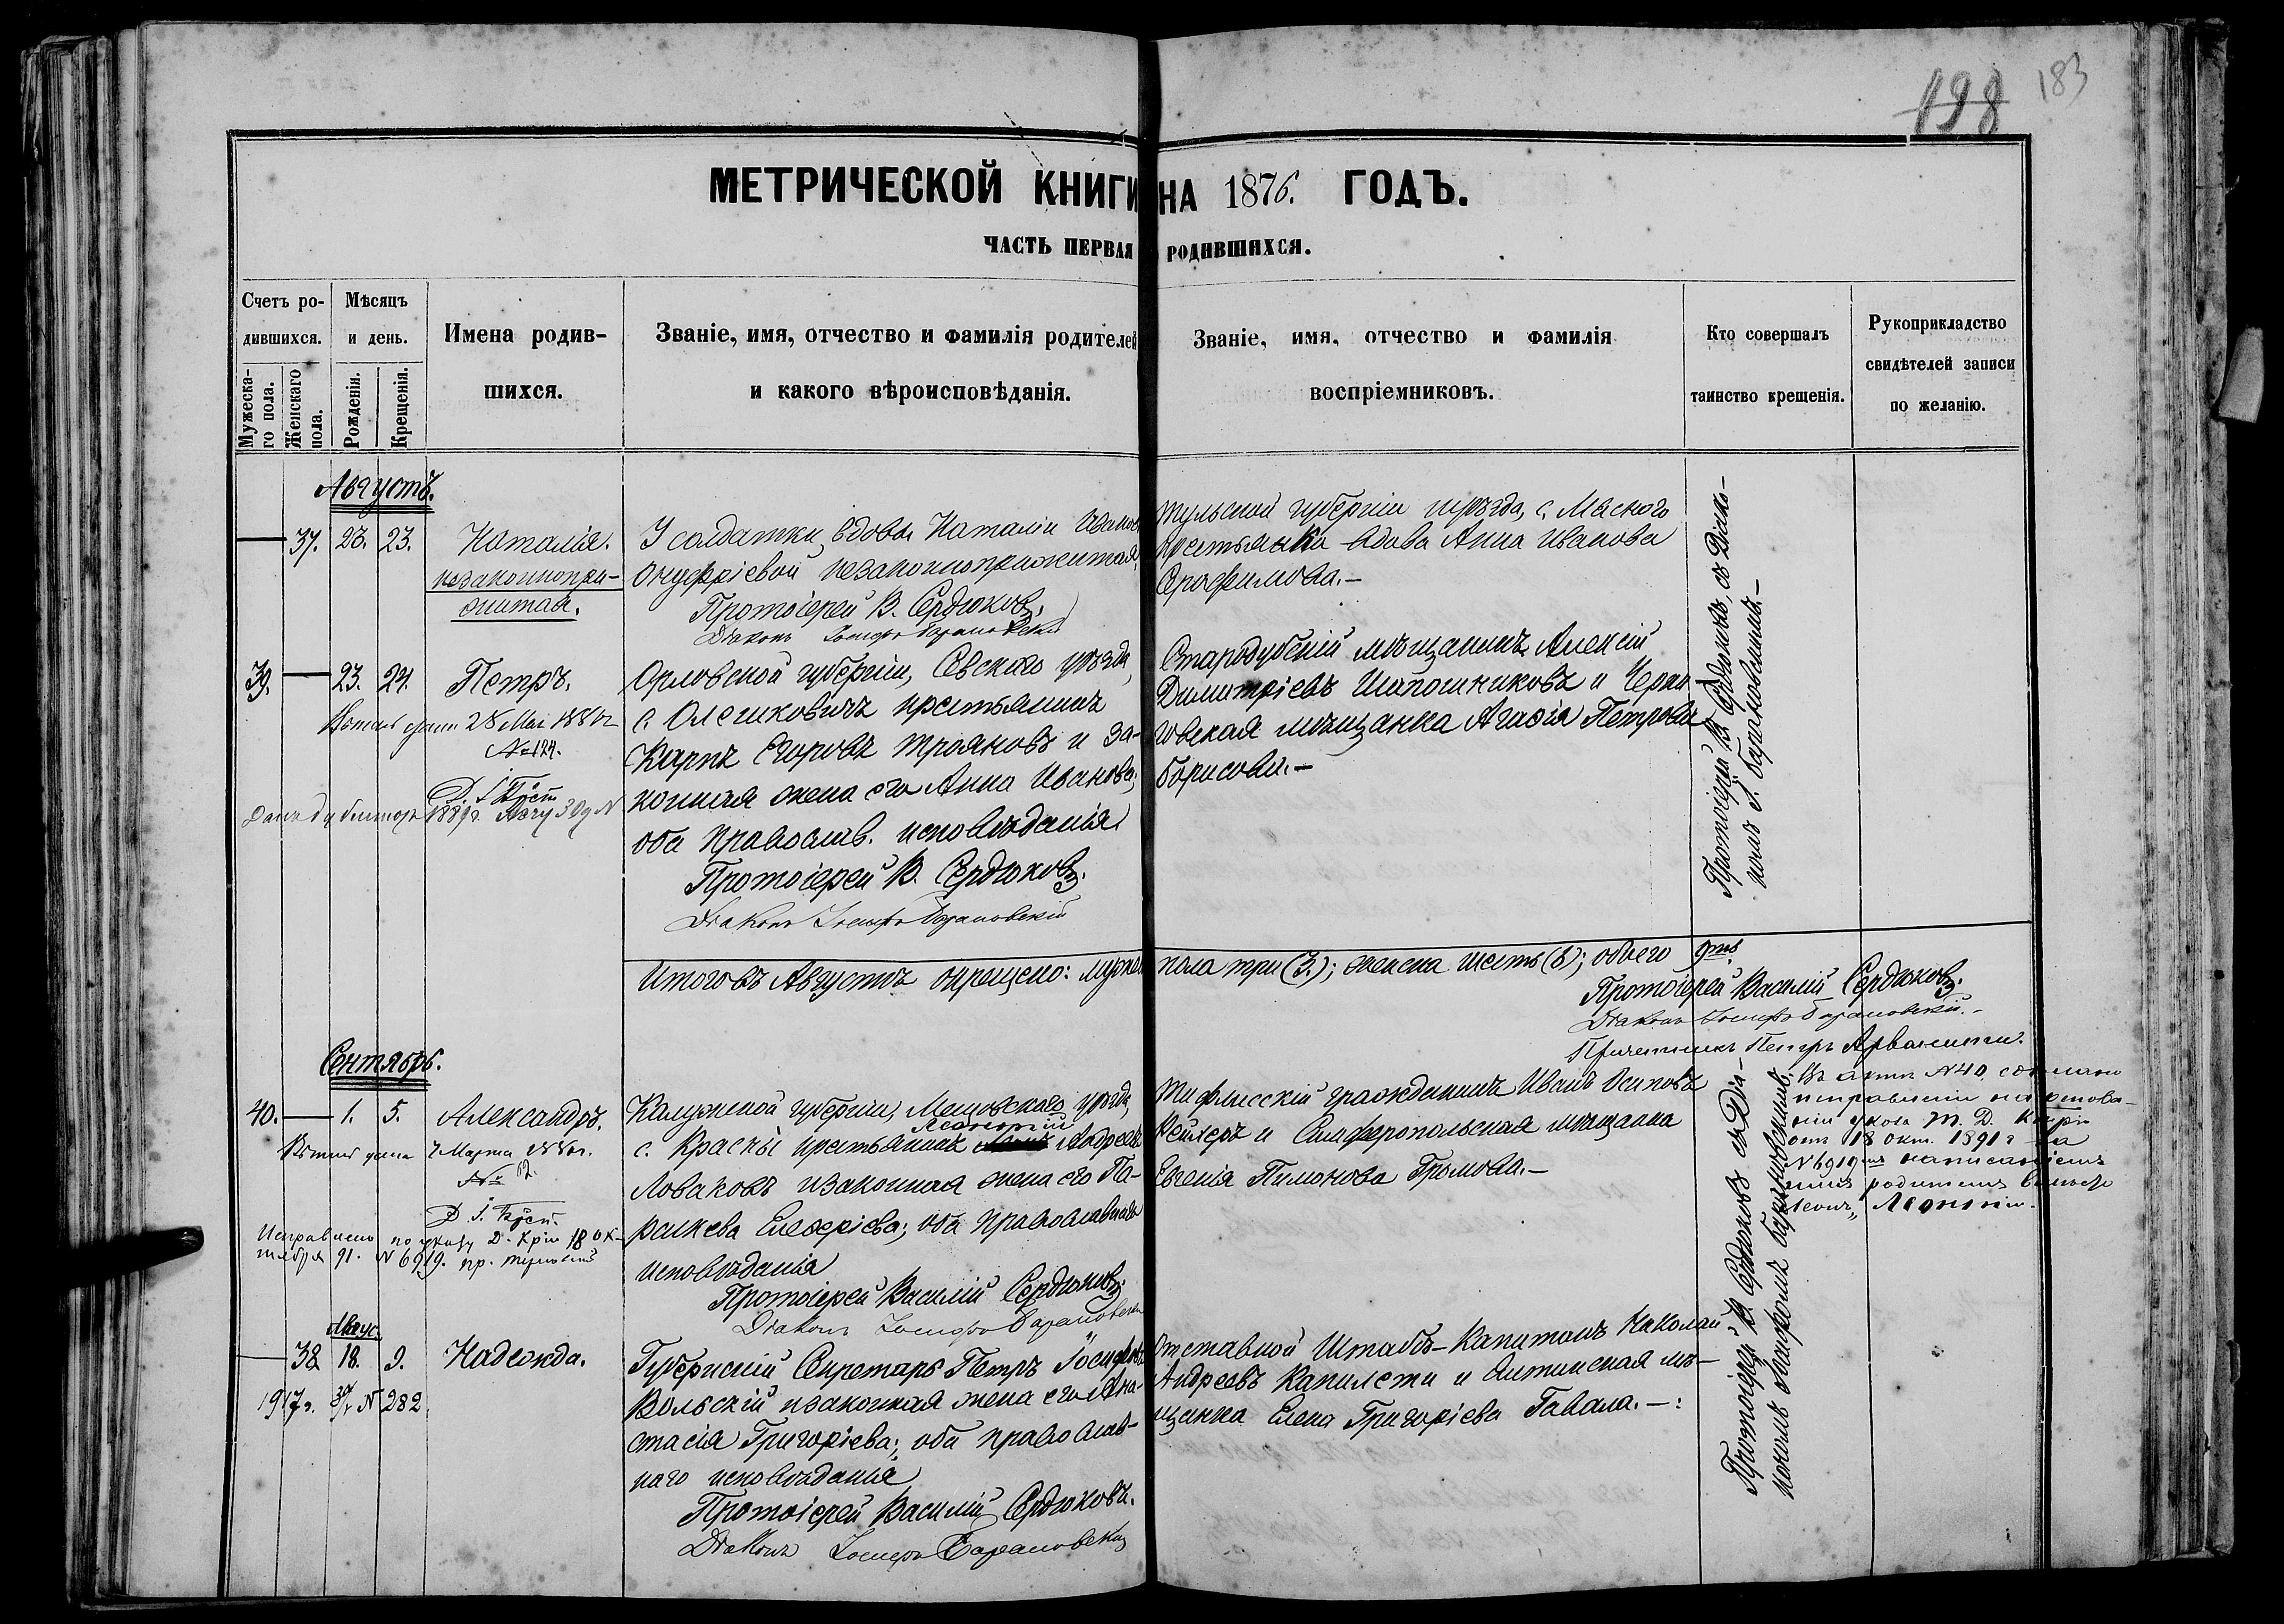 198 183
МЕТРИЧЕСКОЙ КНИГИ НА 1876. ГОДЪ.
ЧАСТЬ ПЕРВАЯ РОДИВШИХСЯ.
Счетъ ро-
дившихся.
Мужеска-
го пола.
Женскаго
пола.
Мѣсяцъ
и день.
Рожденія.
Крещенія.
Имена родив-
шихся.
Званіе, имя, отчество и фамилія родителей
и какого вѣроисповѣданія.
Званіе, имя, отчество и фамилія
воспріемниковъ.
Кто совершалъ
таинство крещенія.
Рукоприкладство
свидѣтелей записи
по желанію.
Августъ.
37. 23. 23. Наталія.
незаконнопри-
житая.
У солдатки вдовы Наталіи Иванов
Онуфріевой незаконноприжитая,
Протоіерей В. Сердюковъ.
Діаконъ Іосифъ Барановскій
Тульской губерніи уѣзда, с.
крестьянка вдова Анна Иванова
39. 23. 24. Петръ.
28 Мая
№ 124.
Орловской губерніи, Севскаго уѣзда,
с. Олешковичъ крестьянинъ
Карпъ Егоровъ Трояновъ и за-
конная жена его Анна Иванова,
оба православ. исповѣданія.
Протоіерей В. Сердюковъ.
Діаконъ Іосифъ Барановскій
Стародубскій мѣщанинъ Алексій
Димитріевъ Шапошниковъ и Черни-
говская мѣщанка Агафія Петрова
Борисова.—
Протоіерей В. Сердюковъ, съ Діако-
номъ І. Барановскимъ.—
Итого въ Августѣ окрещено: мужск. пола три (3.); женска шесть (6); обоего 9ть
Протоіерей Василій Сердюковъ.
Діаконъ Іосифъ Барановскій.—
Причетникъ Петръ
Сентябрь.
40. 1. 5. Александръ.
7 Марта
№ 52.
Исправлено по указу Д. Кр 18 Ок-
тября 91. № 6919. пр.
Калужской губерніи, Мещовскаго уѣзда,
Леонтій
с. Красны крестьянинъ Андреевъ
Ловаковъ и законная жена его Па-
раскева Елеферіева; оба православнаго
исповѣданія
Протоіерей Василій Сердюковъ.
Діаконъ Іосифъ Барановскій
Тифлисскій гражданинъ Иванъ Осиповъ
Кейлеръ и Симферопольская мѣщанка
Евгенія Пимонова Громова.—
Въ актѣ № 40. сдѣлано
исправленіе на основа-
ніи указа Т. Д. К
отъ 18 Окт. 1891 г за
№ 6919 написаніемъ
имя родителя вмѣсто
Леонъ, Леонтій.
Август.
38 18. 9. Надежда.
1917 г. № 282.
Губернскій Секретарь Петръ Іосифовъ
Вольскій и законная жена его Ана-
стасія Григоріева; оба православ-
наго исповѣданія
Протоіерей Василій Сердюковъ.
Діаконъ Іосифъ Барановскій
Отставной Штабсъ-Капитанъ Николай
Андреевъ Капилети и Ялтинская мѣ-
щанка Елена Григоріева Гавала.—
Протоіерей В. Сердюковъ съ Діа-
кономъ Іосифомъ Барановскимъ.